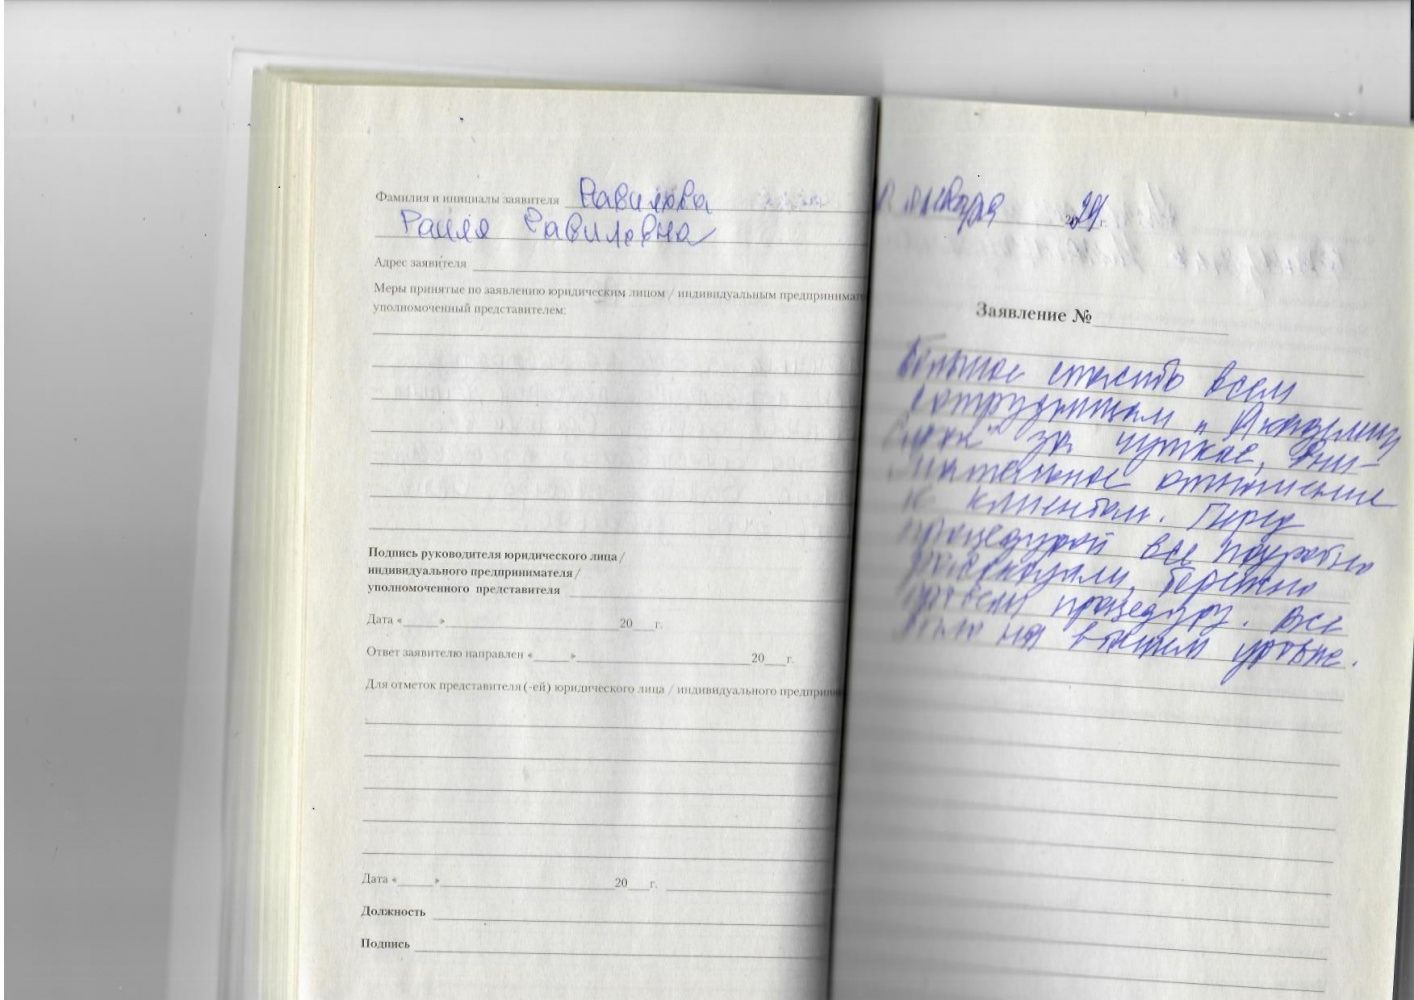 Фамилия и инициалы заявителя Равилова
Раиля Равиловна
Адрес заявителя
Меры принятые по заявлению юридическим лицом / индивидуальным предпринимат
уполномоченный представителем:
Подпись руководителя юридического лица /
индивидуального предпринимателя /
уполномоченного представителя
Дата «______» 20___г.
Ответ заявителю направлен «______» 20___г.
Для отметок представителя (-ей) юридического лица / индивидуального предприни
Дата «______» 20___г.
Должность
Подпись
января 2024.
Заявление №
Большое спасибо всем
сотрудницам „Академии
за чуткое, вни-
мательное отношение
к клиентам. Перед
процедурой все подробно
рассказали, бережно
провели процедуру. Все
было на высшем уровне.